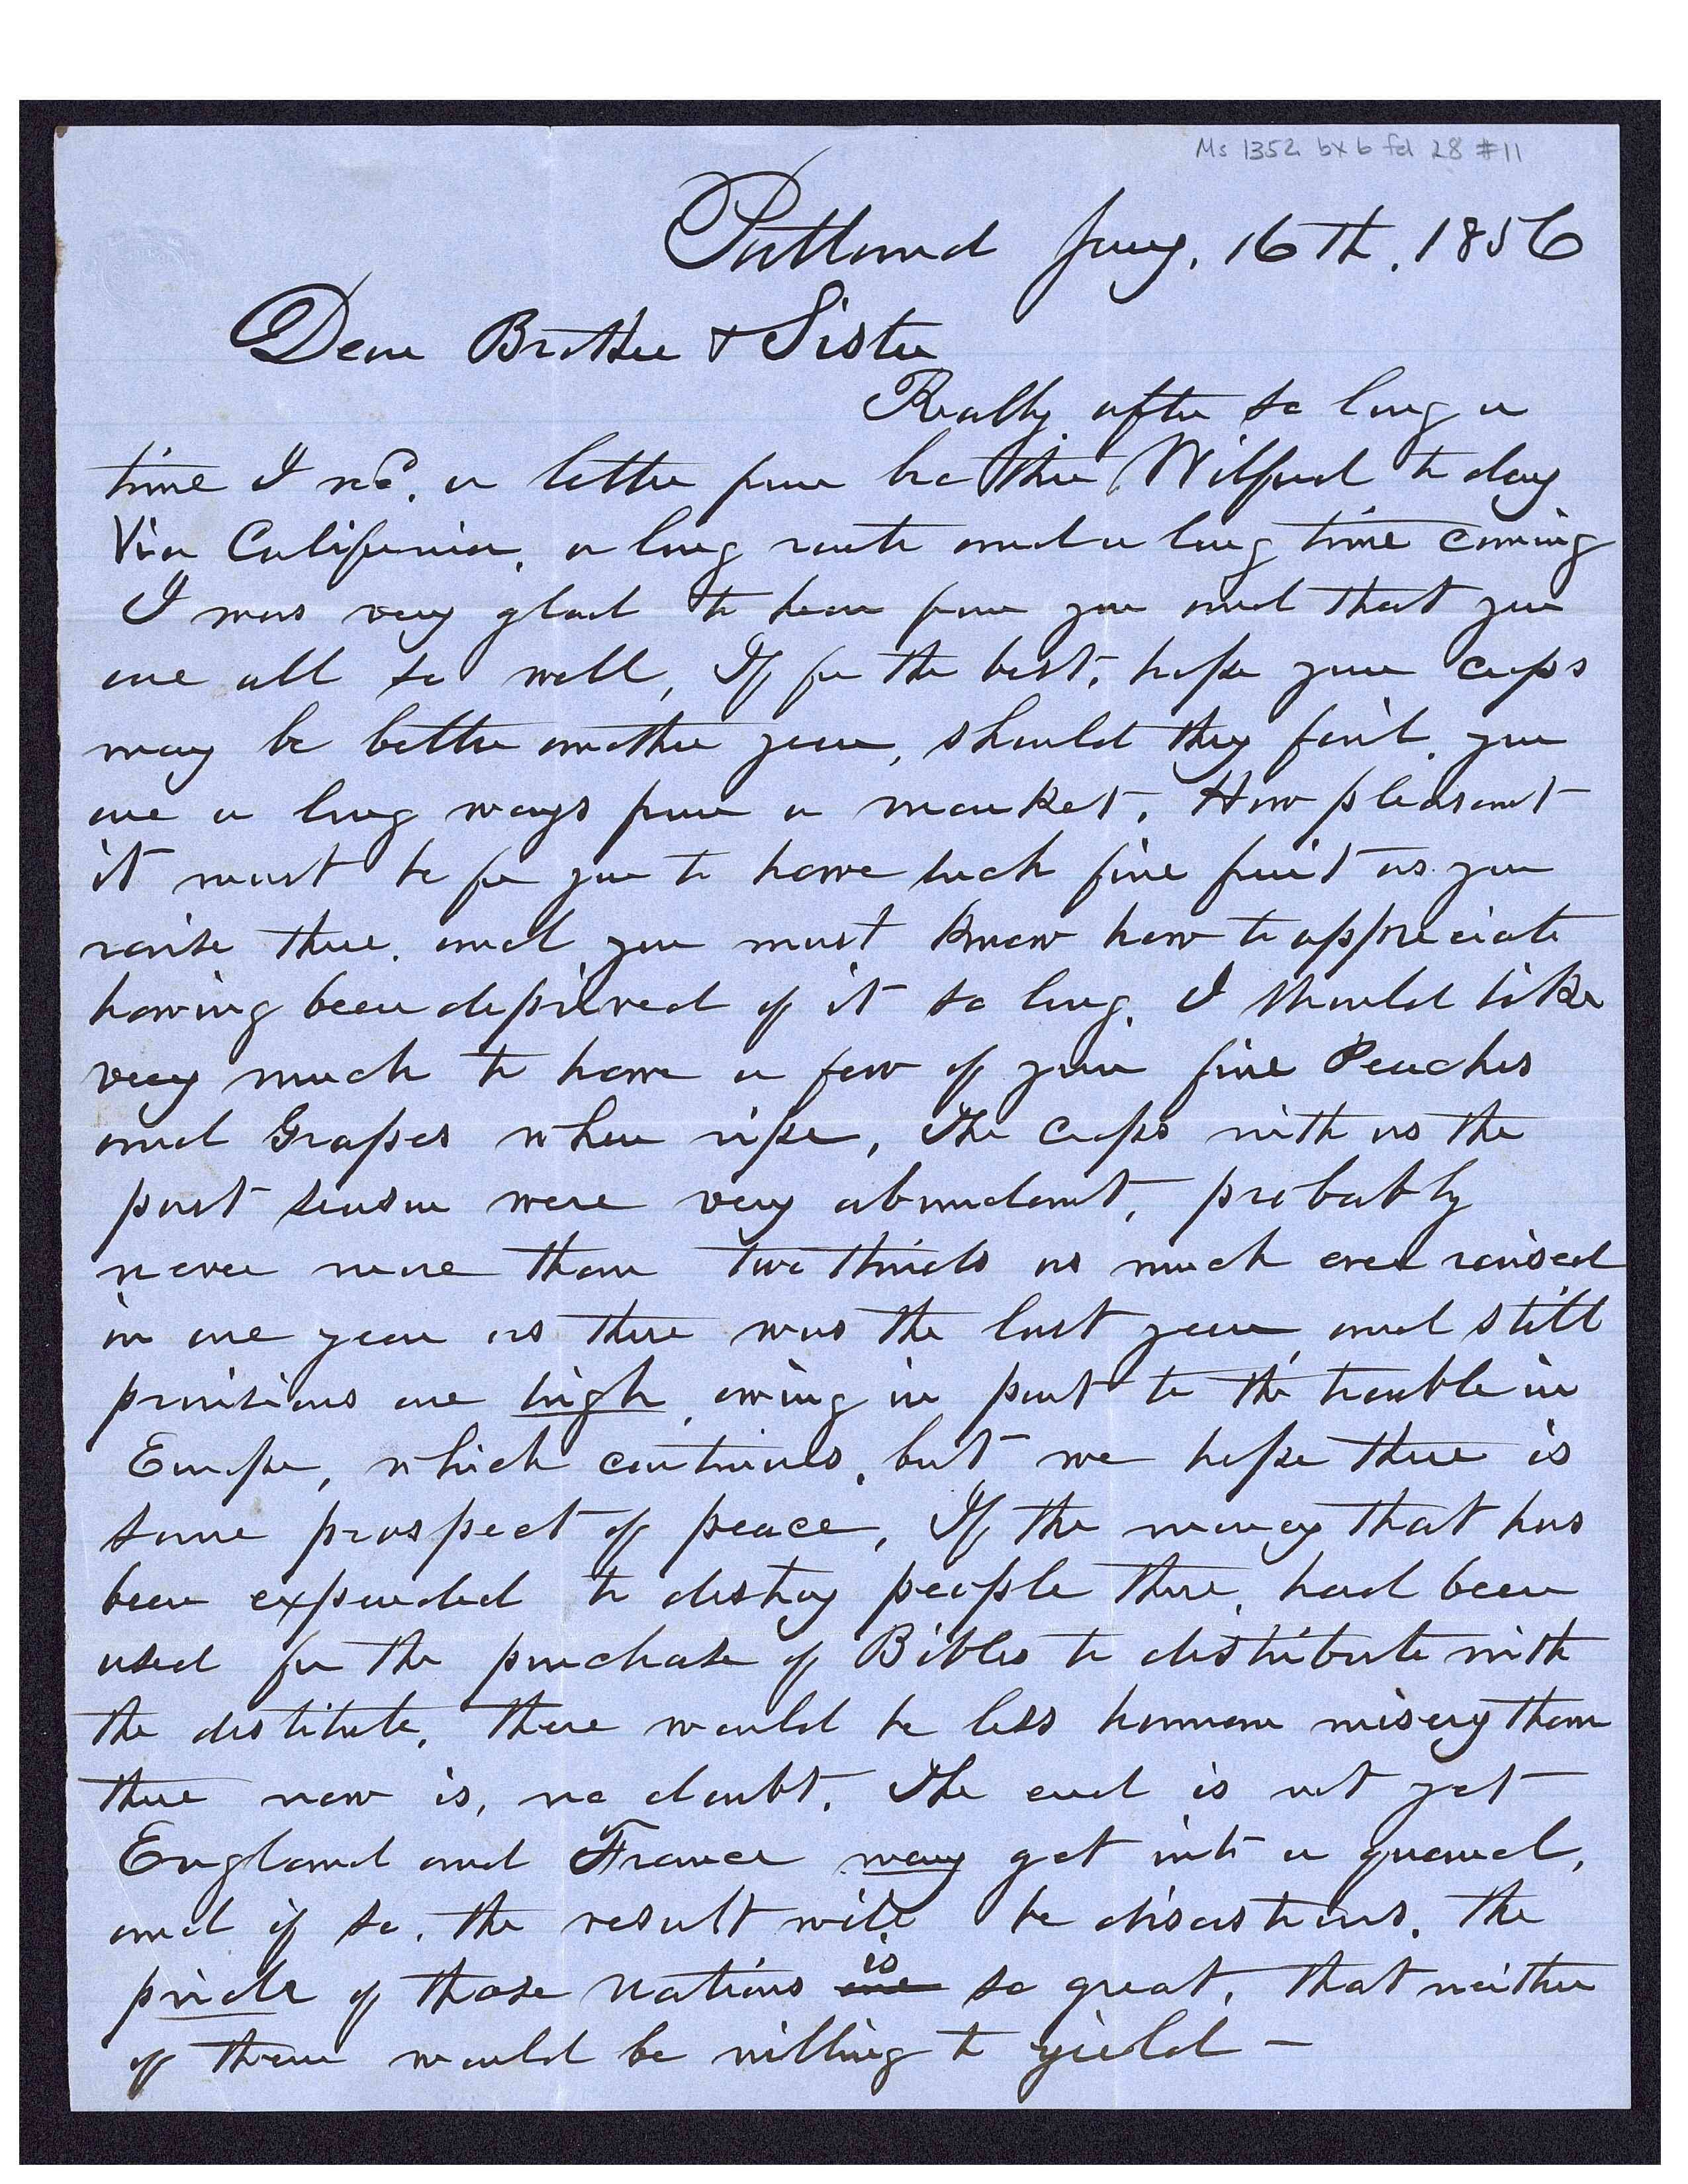 Ms 1352 bx 6 fd 28 #11
Portland Jany. 16th. 1856
Dear Brother & Sister
Really after so long a
time I recd. a letter from brother Wilford to day
Via California, a long route and a long time coming
I was very glad to hear from you and that you
are all so well, If for the best, hope your crops
may be better another year, should they fail, you
are a long ways from a market. How pleasant
it must be for you to have such fine fruit as you
raise there, and you must know how to appreciate
having been deprived of it so long. I should like
very much to have a few of your fine Peaches
and Grapes when ripe, The crops with us the
past season were very abundant, probably
never more than two thirds as much ever raised
in one year as there was the last year and still
provisions are high, owing in part to the trouble in
Europe, which continues, but we hope there is
some prospect of peace, If the money that has
been expended to destroy people there, had been
used for the purchase of Bibles to distribute with
the destitute, there would be less human misery than
there now is, no doubt. The end is not yet
England and France may get into a quarrel,
and if so, the result will be disastrous. The
pride of those Nations are is so great, that neither
of them would be willing to yield —